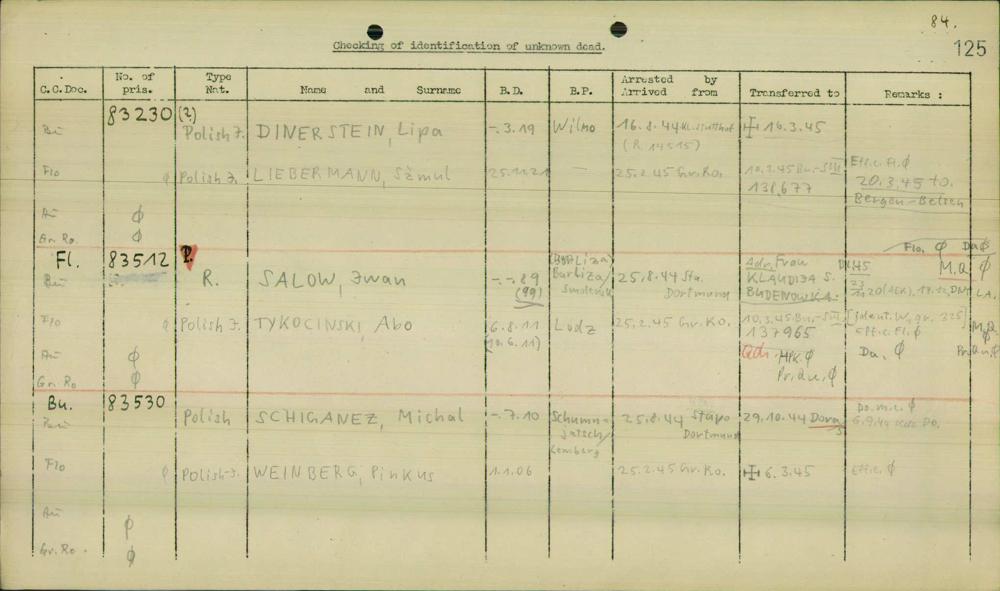 84.
125
Checking of identification of unknown dead.
C.C.Doc. No. of pris. Type Nat. Name and Surname B.D. B.P. Arrested by Arrived from Transferred to Remarks :
83230 (?)
Bu Polish J. DINERSTEIN, Lipa -.3.19 Wilno 16.8.44 Kl. Stutthof 16.3.45
(R. 14515)
Flo φ Polish J. LIEBERMANN, Szmul 25.11.21 — 25.2.45 Gr.Ro. 10.2.45 Bu.-SIII Eff.c. Fl. φ
138,677 20.3.45 to.
Bergen-Belsen
Au φ
Gr. Ro. φ
Flo. φ Da φ
Fl. 83512 P.
Bu R. SALOW, Iwan -.-.89 Barliza/ 25.8.44 Sta. Adr. Frau M.Q. φ
(99) Smolensk Dortmund KLAUDIJA S.
BUDENOWKA.
Flo Polish J. TYKOCINSKI, Abo 6.8.11 Lodz 25.2.45 Gr.Ro. 10.3.45 Bu.-SIII [Ident. W. gr. 325] M.Q.
(10.6.11) 137965 Eff.c. Fl. φ φ
Au φ Adr. HPK. φ Da. φ Pr.Qu. φ
Gr. Ro φ Pr.Qu. φ
Bu. 83530
Polish SCHIGANEZ, Michal -.7.10 Schumn- 25.8.44 Stapo 29.10.44 Dora Do.m.c. φ
jatsch/ Dortmund
Lemberg
Flo φ Polish-J. WEINBERG, Pinkus 1.1.06 25.2.45 Gr.Ro. 6.3.45 Eff.c. φ
Au φ
Gr. Ro. φ